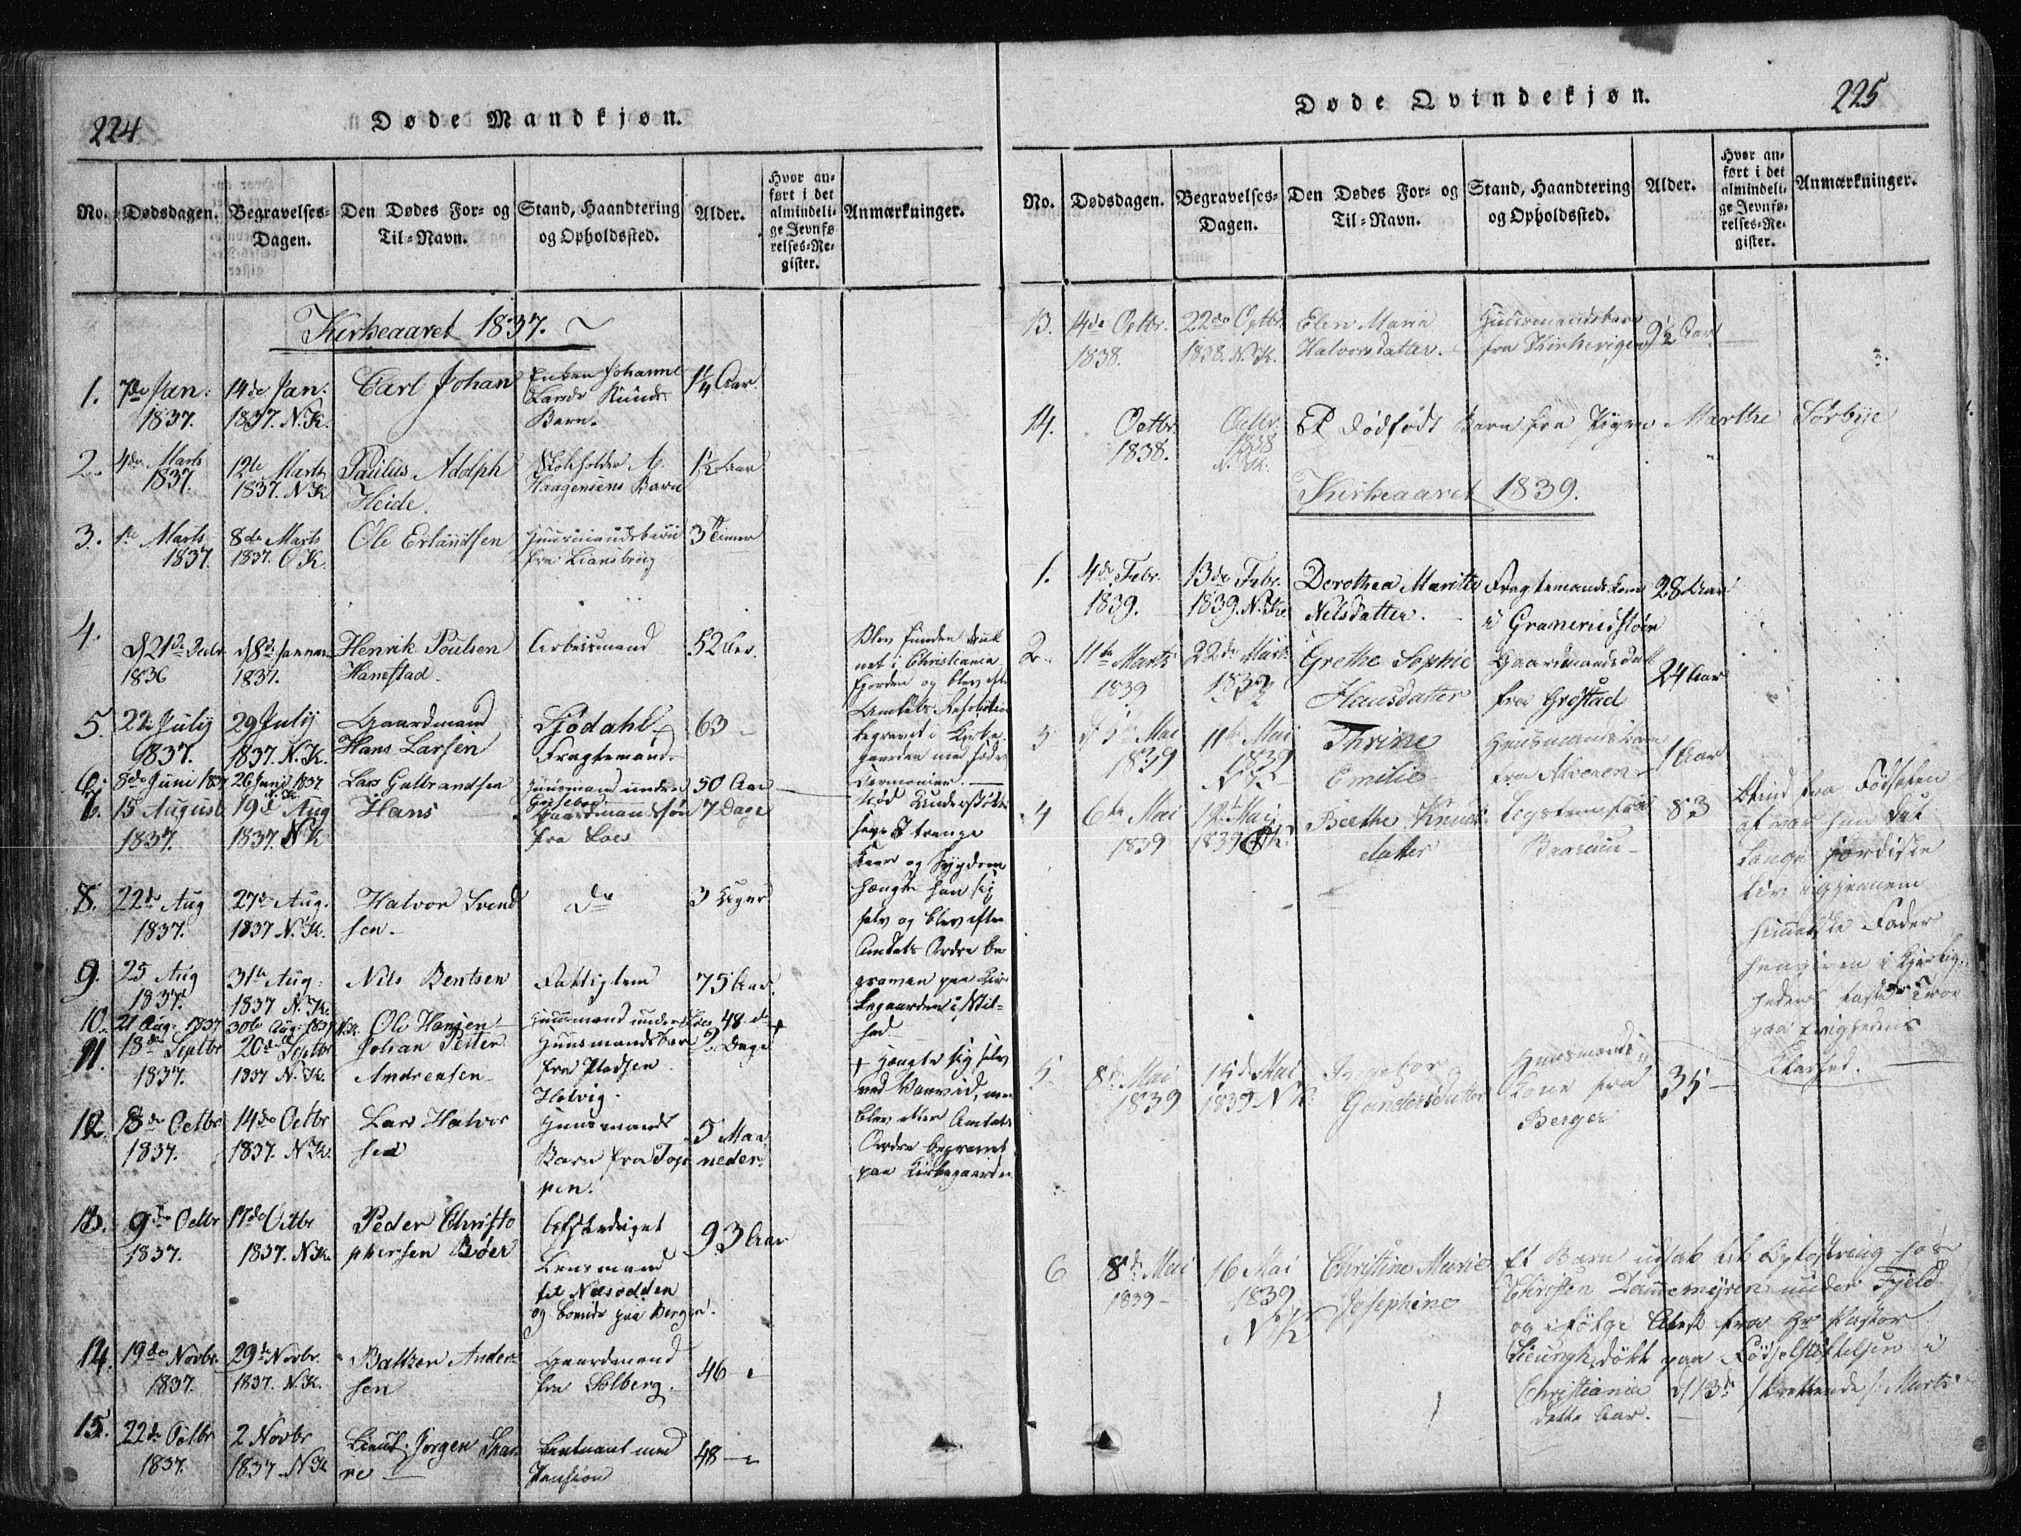 224
Døde Mandkjøn.
No.
Dødsdagen.
Begravelses-
Dagen.
Den Dødes For- og
Til-Navn.
Stand, Haandtering
og Opholdssted.
Alder.
Hvor an-
ført i det
almindeli-
ge Jevnfø-
relses-Re-
gister.
Anmærkninger.
Kirkeaaret 1837.
1.
7de Jan:
1837.
14de Jan:
1837. N.K.
Carl Johan
Enken Johanne
Barn.
1¼ Aar.
2.
4de Marts
1837.
12te Marts
1837. N.K
Paulus Adolph
Heide.
A.
Haagensens Barn
Aar
3.
1te Marts
1837.
8de Marts
1837. O.K.
Ole Erlandsen
Huusmandsbarn
fra Liansbrug
3 Timer
4.
d 21de Decbr
1836
d 8de Januar
1837.
Henrik Poulsen
Hanestad.
Arbeidsmand
52 Aar.
Blev funden druk
net i Christiania
Fjorden og blev efter
Amtets Resolution
begravet i Kirke
gaarden med
Ceremonier.
5.
22de July
1837.
29 July
1837. N.K.
Gaardmand
Hans Larsen
Sjødahl
Fragtemand
63
8de Juni 1837
26 Juni 1837
N.K.
Lars Gulbrandsen
Huusmand under
50 Aar
15 August
1837.
19de Aug
1837 N.K
Hans
Gaardmandssøn
fra Loes
7 Dage
trange
Kaar og Sygdom
hængte han sig
selv og blev efter
Amtets Ordre be
graven paa Kir
kegaarden i Stil-
hed
8.
22de Aug
1837.
27de Aug.
1837 N.K.
Halvor Svend
sen
do
3 Uger
9.
25 Aug
1837.
31te Aug:
1837 N.K.
Nils Bentsen
Fattiglem
75 Aar.
10.
21 Aug. 1837
30te Aug. 1837 N.K.
Ole Hansen
Huusmand under Loes
48 do +
11.
18de Septbr
1837.
20de Septbr
1837 N.K.
Johan Peter
Andreasen
Huusmandsbarn
fra Pladsen
Helvig.
2 Dage
+ hængte sig selv
ved Vanvid, men
blev efter Amtets
Ordre begravet
paa Kirkegaarden
12.
8de Octbr
1837.
14de Octbr
1837. N.K.
Lars Halvor
sen
Huusmands
Barn fra Top
pen.
5 Maa
neder.
13.
9de Octbr
1837.
17de Octbr
1837. N.K.
Peder Christo
phersen Bøer
Afskediget
Lensmand
til Næsodden
og boende paa Bergen.
93 Aar
14.
19de Novbr.
1837.
29de Novbr.
1837. N.K.
Balzer Ander
sen
Gaardmand
fra Solberg.
46
15.
22de Octbr
1837.
2 Novbr
1837 N.K
Lieut. Jørgen
re
Lieutnant med
Pension
48
225
Døde Qvindekjøn.
No.
Dødsdagen.
Begravelses-
Dagen.
Den Dødes For- og
Til-Navn.
Stand, Haandtering
og Opholdssted.
Alder.
Hvor an-
ført i det
almindeli-
ge Jevnfø-
relses-Re-
gister.
Anmærkninger.
13.
14de Octbr.
1838.
22de Octbr.
1838. N.K.
Elen Maria
Halvorsdatter.
Huusmandsbarn
fra Kirkevigen
9½ Aar
14.
Octbr.
1838.
Octbr.
1838
N.K.
Et dødfødt Barn fra Pigen Marthe Sørbye
Kirkeaaret 1839.
1.
4de Febr.
1839.
13de Febr.
1839. N.K.
Dorothea Marite
Nilsdatter.
Fragtemandskone
i Granerudstøen
28 Aar
2.
11te Marts
1839
22de Marts
1839
Grethe Sophie
Hansdatter
Gaardmandsdatt
fra Grøstad
24 Aar
3
Mai
1839
11te Mai
1839
N.K.
Thrine
Emilie
fra Alveren
1 Aar
4
6te Mai
1839
12te Mai
1839
Berthe Knuds
datter
Legslem fra
83
Blind fra Fødselen
af var hun det
lange jordiske
Liv igjennem
himmelske Fader
hengiven i Kjærlig-
hedens faste Troe
paa Evighedens
Klarhed.
5.
8de Mai
1839
15de Mai
1839 N.K.
Ingebor
Gundersdatter
Huusmands
Kone fra
Berger
35
6
8de Mai
1839
16 Mai
1839
N.K
Christine Marie
Josephine
Et Barn udsat til Opfostring hos
under Fjeld
og ifølge Attest fra Hr Pastor
døbt paa Fødselsstiftelsen i
Christiania d 13de /:trettende:/ Marts
dette Aar.